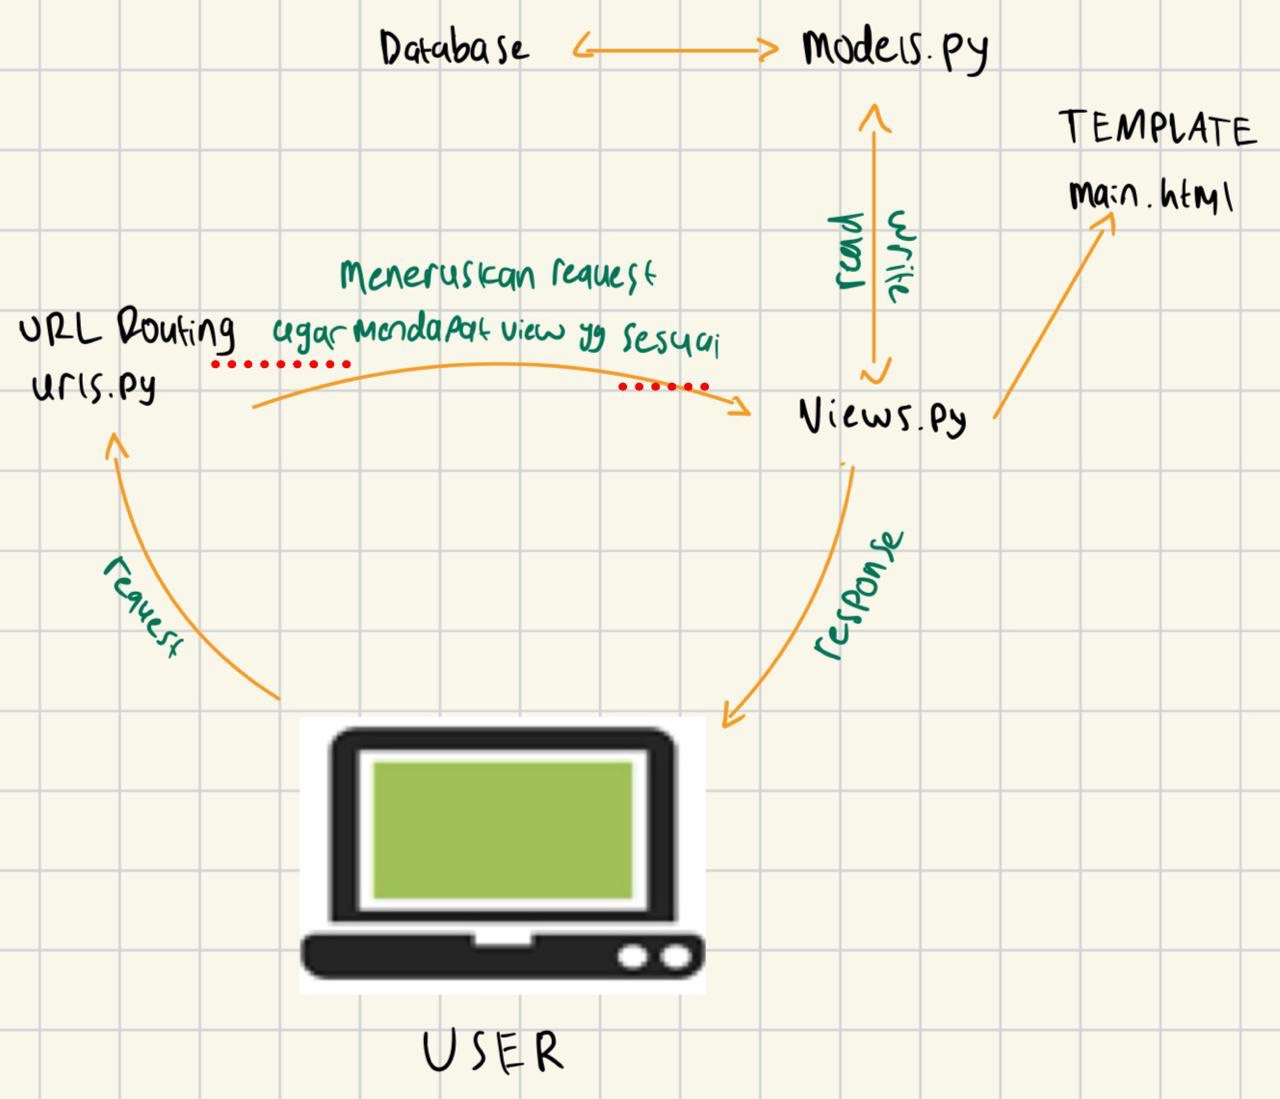 Database
Models.py
TEMPLATE
main.html
read
write
Meneruskan request
agar mendapat view yg sesuai
URL Routing
urls.py
Views.py
request
response
USER